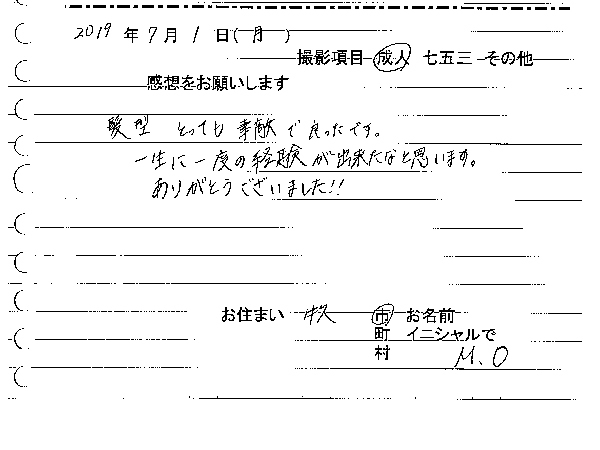 2019 年 7 月 1 日(月)
撮影項目 成人 七五三 その他
感想をお願いします
髪型 とっても素敵で良ったです。
一生に一度の経験が出来たなと思います。
ありがとうございました!!
お住まい 市 お名前
町 イニシャルで
村 M.O